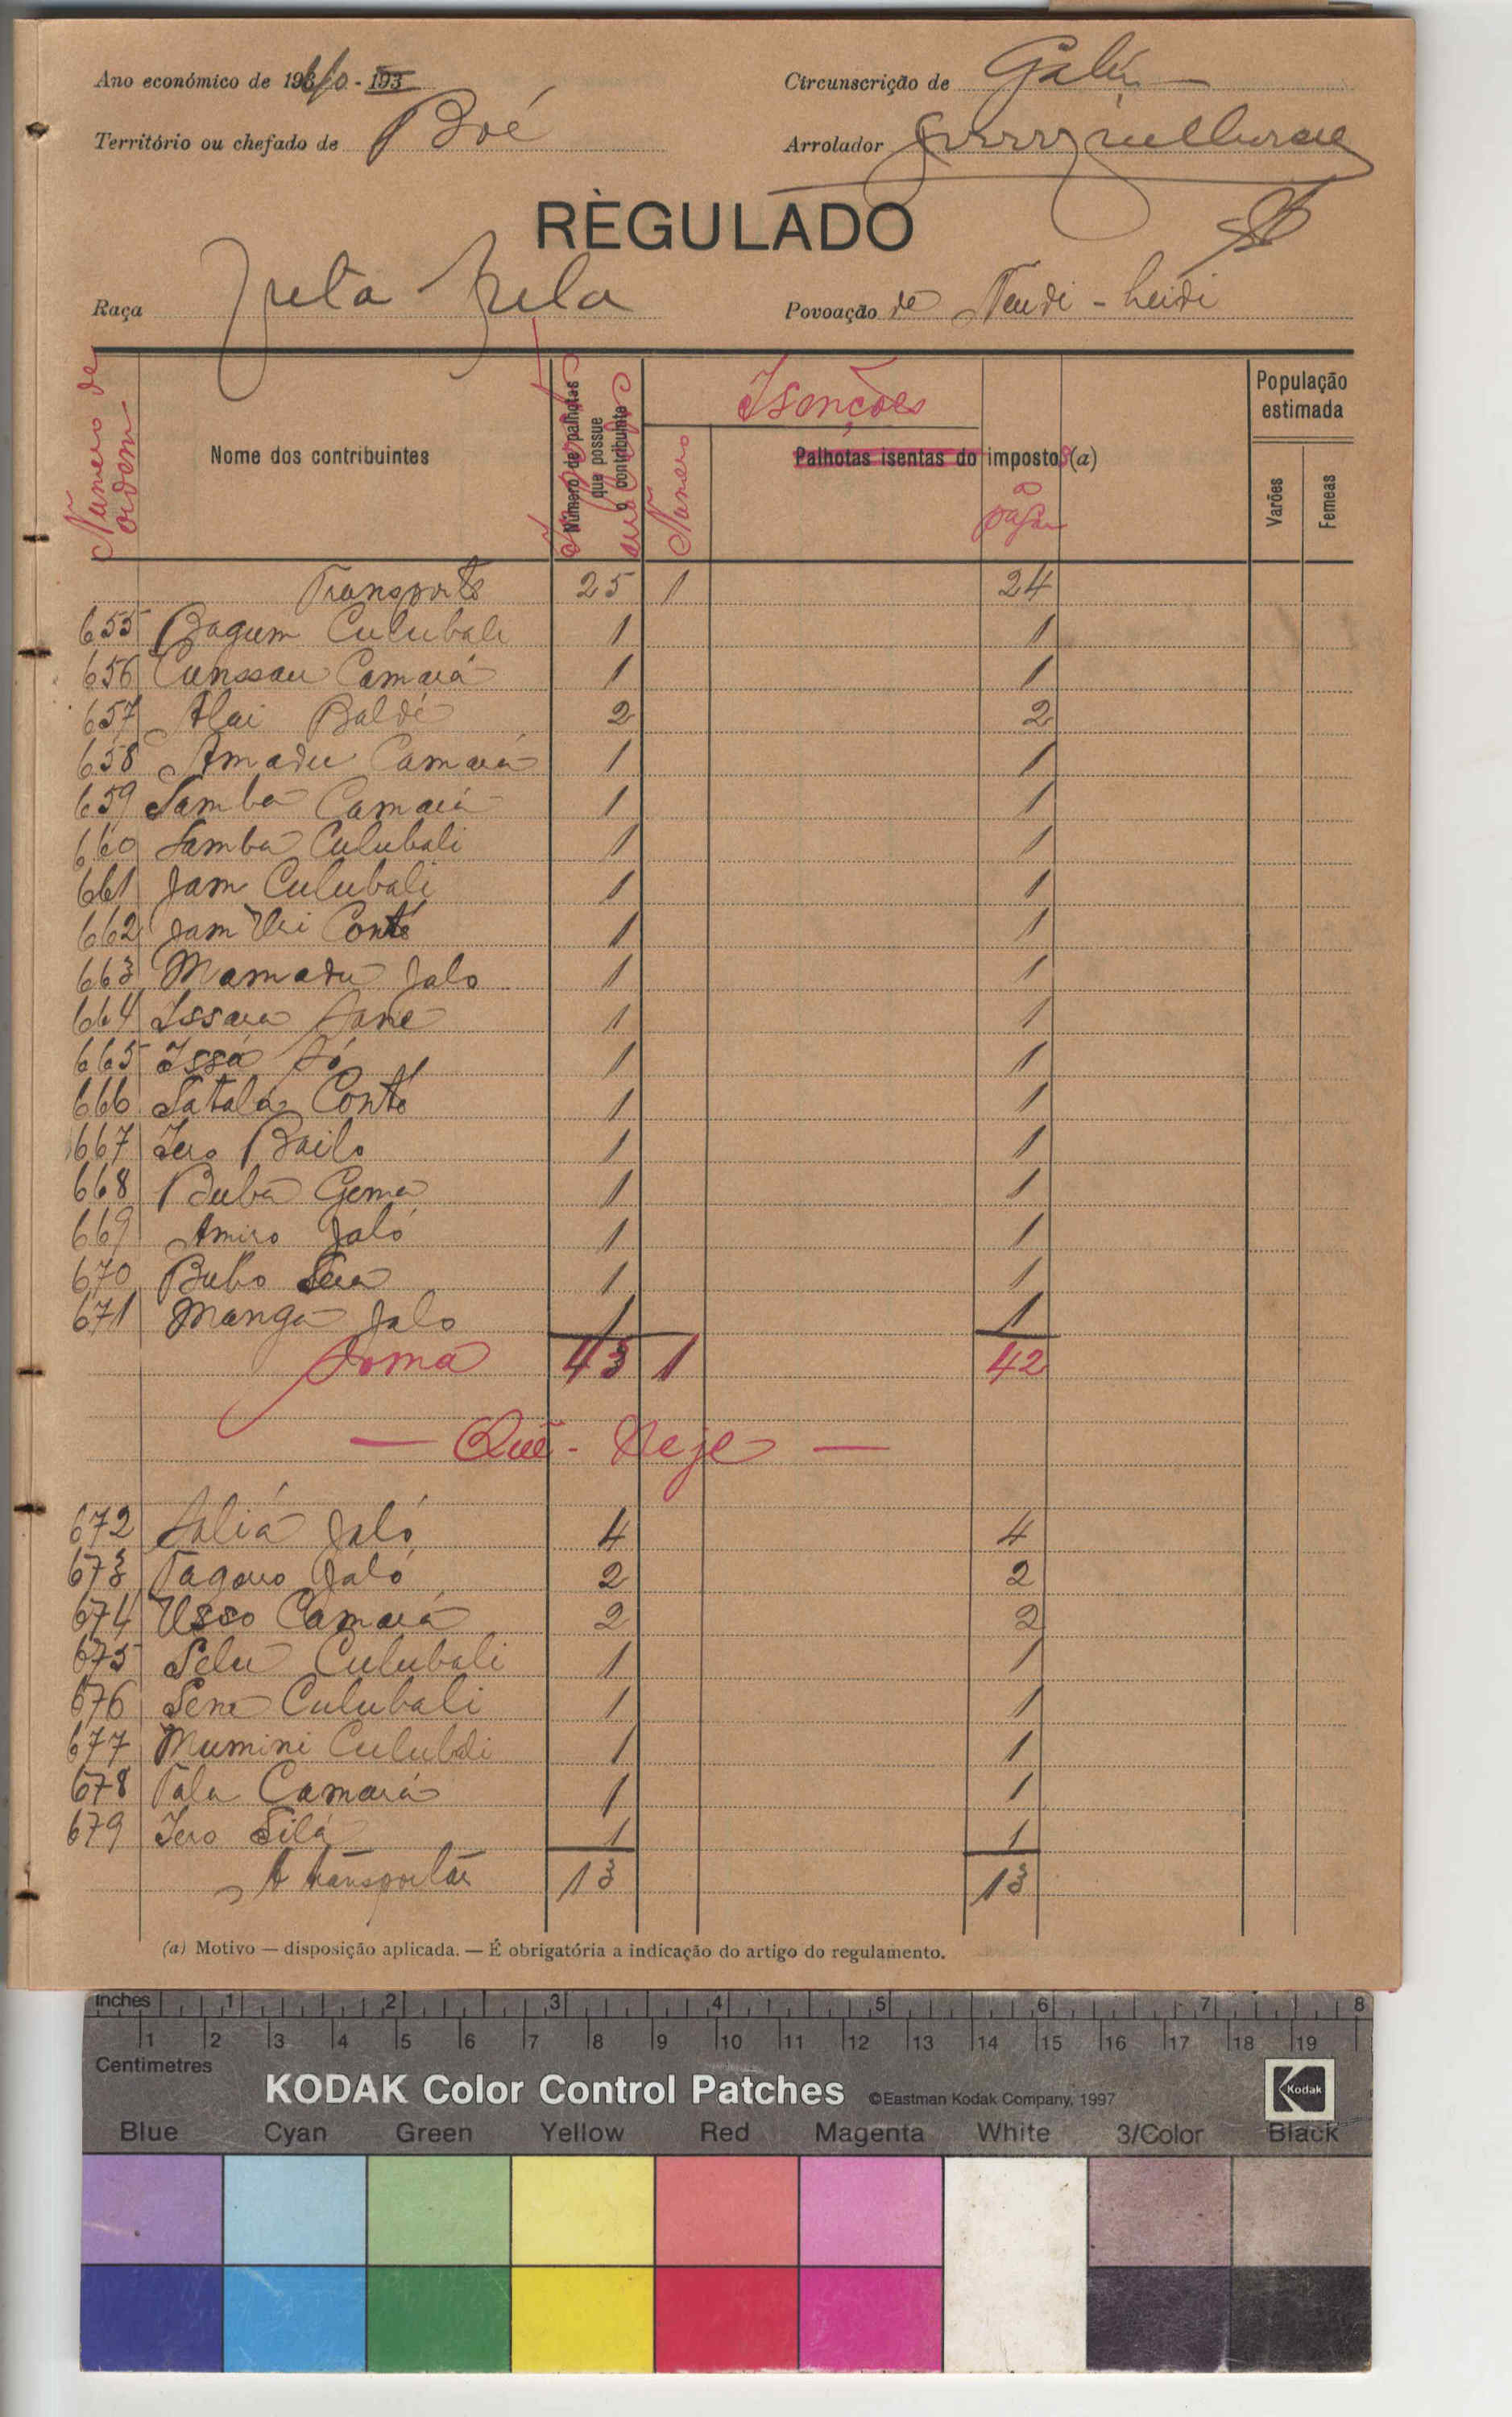 Ano económico de 19
Circunscrição de Gabú
Território ou chefado de Boé
Arrolador
RÈGULADO
Raça Futa Fula
Povoação de
Número de ordem
Nome dos contribuintes
Número de palhotas que possue o contribuinte
Isenções
Número
Palhotas isentas do impostos (a)
a pagar
População estimada
Varões
Femeas
Transporte 25 1 24
655 Bagum Culubali 1 1
656 Cunssau Camará 1 1
657 Alai Baldé 2 2
658 Amadu Camará 1 1
659 Samba Camará 1 1
660 Samba Culubali 1 1
661 Jam Culubali 1 1
662 Jam Conté 1 1
663 Mamadu Jalo 1 1
664 Issara Sané 1 1
665 Issá Só 1 1
666 Satalá Conté 1 1
667 Iero Bailo 1 1
668 Buba Gema 1 1
669 Amiro Jaló 1 1
670 Bubo 1 1
671 Manga Jalo 1 1
Soma 43 1 42
— Qué - Neje —
672 Saliá Jaló 4 4
673 Jaló 2 2
674 Usso Camará 2 2
675 Selu Culubali 1 1
676 Sene Culubali 1 1
677 Mumini Culubali 1 1
678 Tala Camará 1 1
679 Iero Silá 1 1
A transportar 13 13
(a) Motivo — disposição aplicada. — É obrigatória a indicação do artigo do regulamento.
inches 1 2 3 4 5 6 7 8
1 2 3 4 5 6 7 8 9 10 11 12 13 14 15 16 17 18 19
Centimetres
KODAK Color Control Patches ©Eastman Kodak Company, 1997
Kodak
Blue Cyan Green Yellow Red Magenta White 3/Color Black